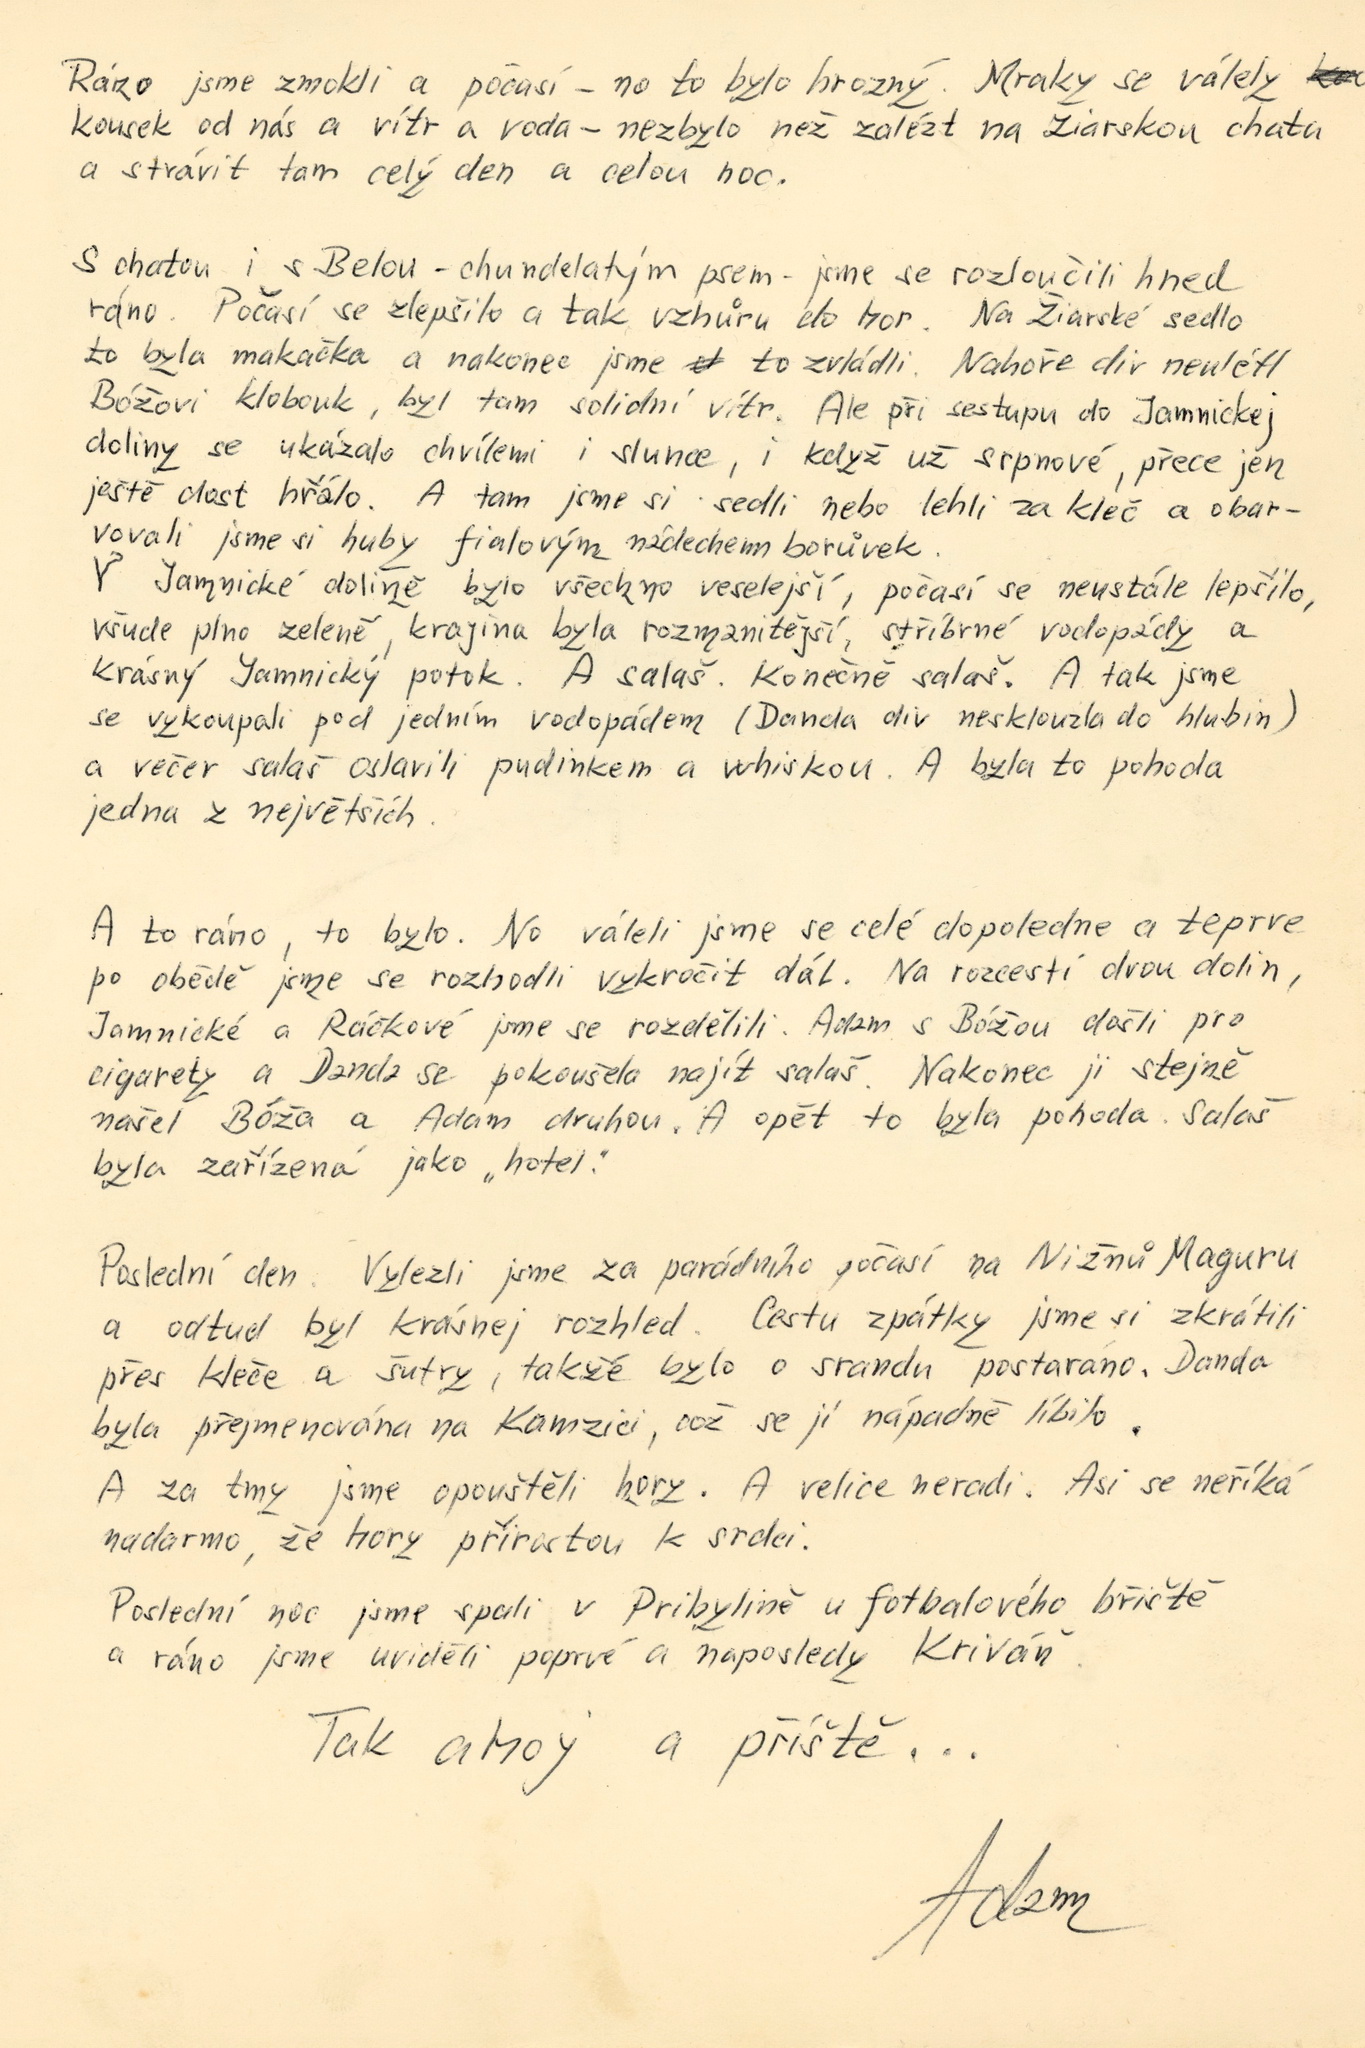 Ráno jsme zmokli a počasí – no to bylo hrozný. Mraky se válely
kousek od nás a vítr a voda – nezbylo než zalézt na Žiarskou chatu
a strávit tam celý den a celou noc.
S chatou i s Belou – chundelatým psem – jsme se rozloučili hned
ráno. Počasí se zlepšilo a tak vzhůru do hor. Na Žiarské sedlo
to byla makačka a nakonec jsme to zvládli. Nahoře div neulétl
Bóžovi klobouk, byl tam solidní vítr. Ale při sestupu do Jamnickej
doliny se ukázalo chvílemi i slunce, i když už srpnové, přece jen
ještě dost hřálo. A tam jsme si sedli nebo lehli za kleč a obar-
vovali jsme si huby fialovým nádechem borůvek.
V Jamnické dolině bylo všechno veselejší, počasí se neustále lepšilo,
všude plno zeleně, krajina byla rozmanitější, stříbrné vodopády a
krásný Jamnický potok. A salaš. Konečně salaš. A tak jsme
se vykoupali pod jedním vodopádem (Danda div nesklouzla do hlubin)
a večer salaš oslavili pudinkem a whiskou. A byla to pohoda
jedna z největších.
A to ráno, to bylo. No váleli jsme se celé dopoledne a teprve
po obědě jsme se rozhodli vykročit dál. Na rozcestí dvou dolin,
Jamnické a Ráčkové jsme se rozdělili. Adam s Bóžou došli pro
cigarety a Danda se pokoušela najít salaš. Nakonec ji stejně
našel Bóža a Adam druhou. A opět to byla pohoda. Salaš
byla zařízená jako „hotel“.
Poslední den. Vylezli jsme za parádního počasí na Nižnů Maguru
a odtud byl krásnej rozhled. Cestu zpátky jsme si zkrátili
přes kleče a šutry, takže bylo o srandu postaráno. Danda
byla přejmenována na Kamzici, což se jí nápadně líbilo.
A za tmy jsme opouštěli hory. A velice neradi. Asi se neříká
nadarmo, že hory přirostou k srdci.
Poslední noc jsme spali v Pribylině u fotbalového hřiště
a ráno jsme uviděli poprvé a naposledy Kriváň.
Tak ahoj a příště...
Adam